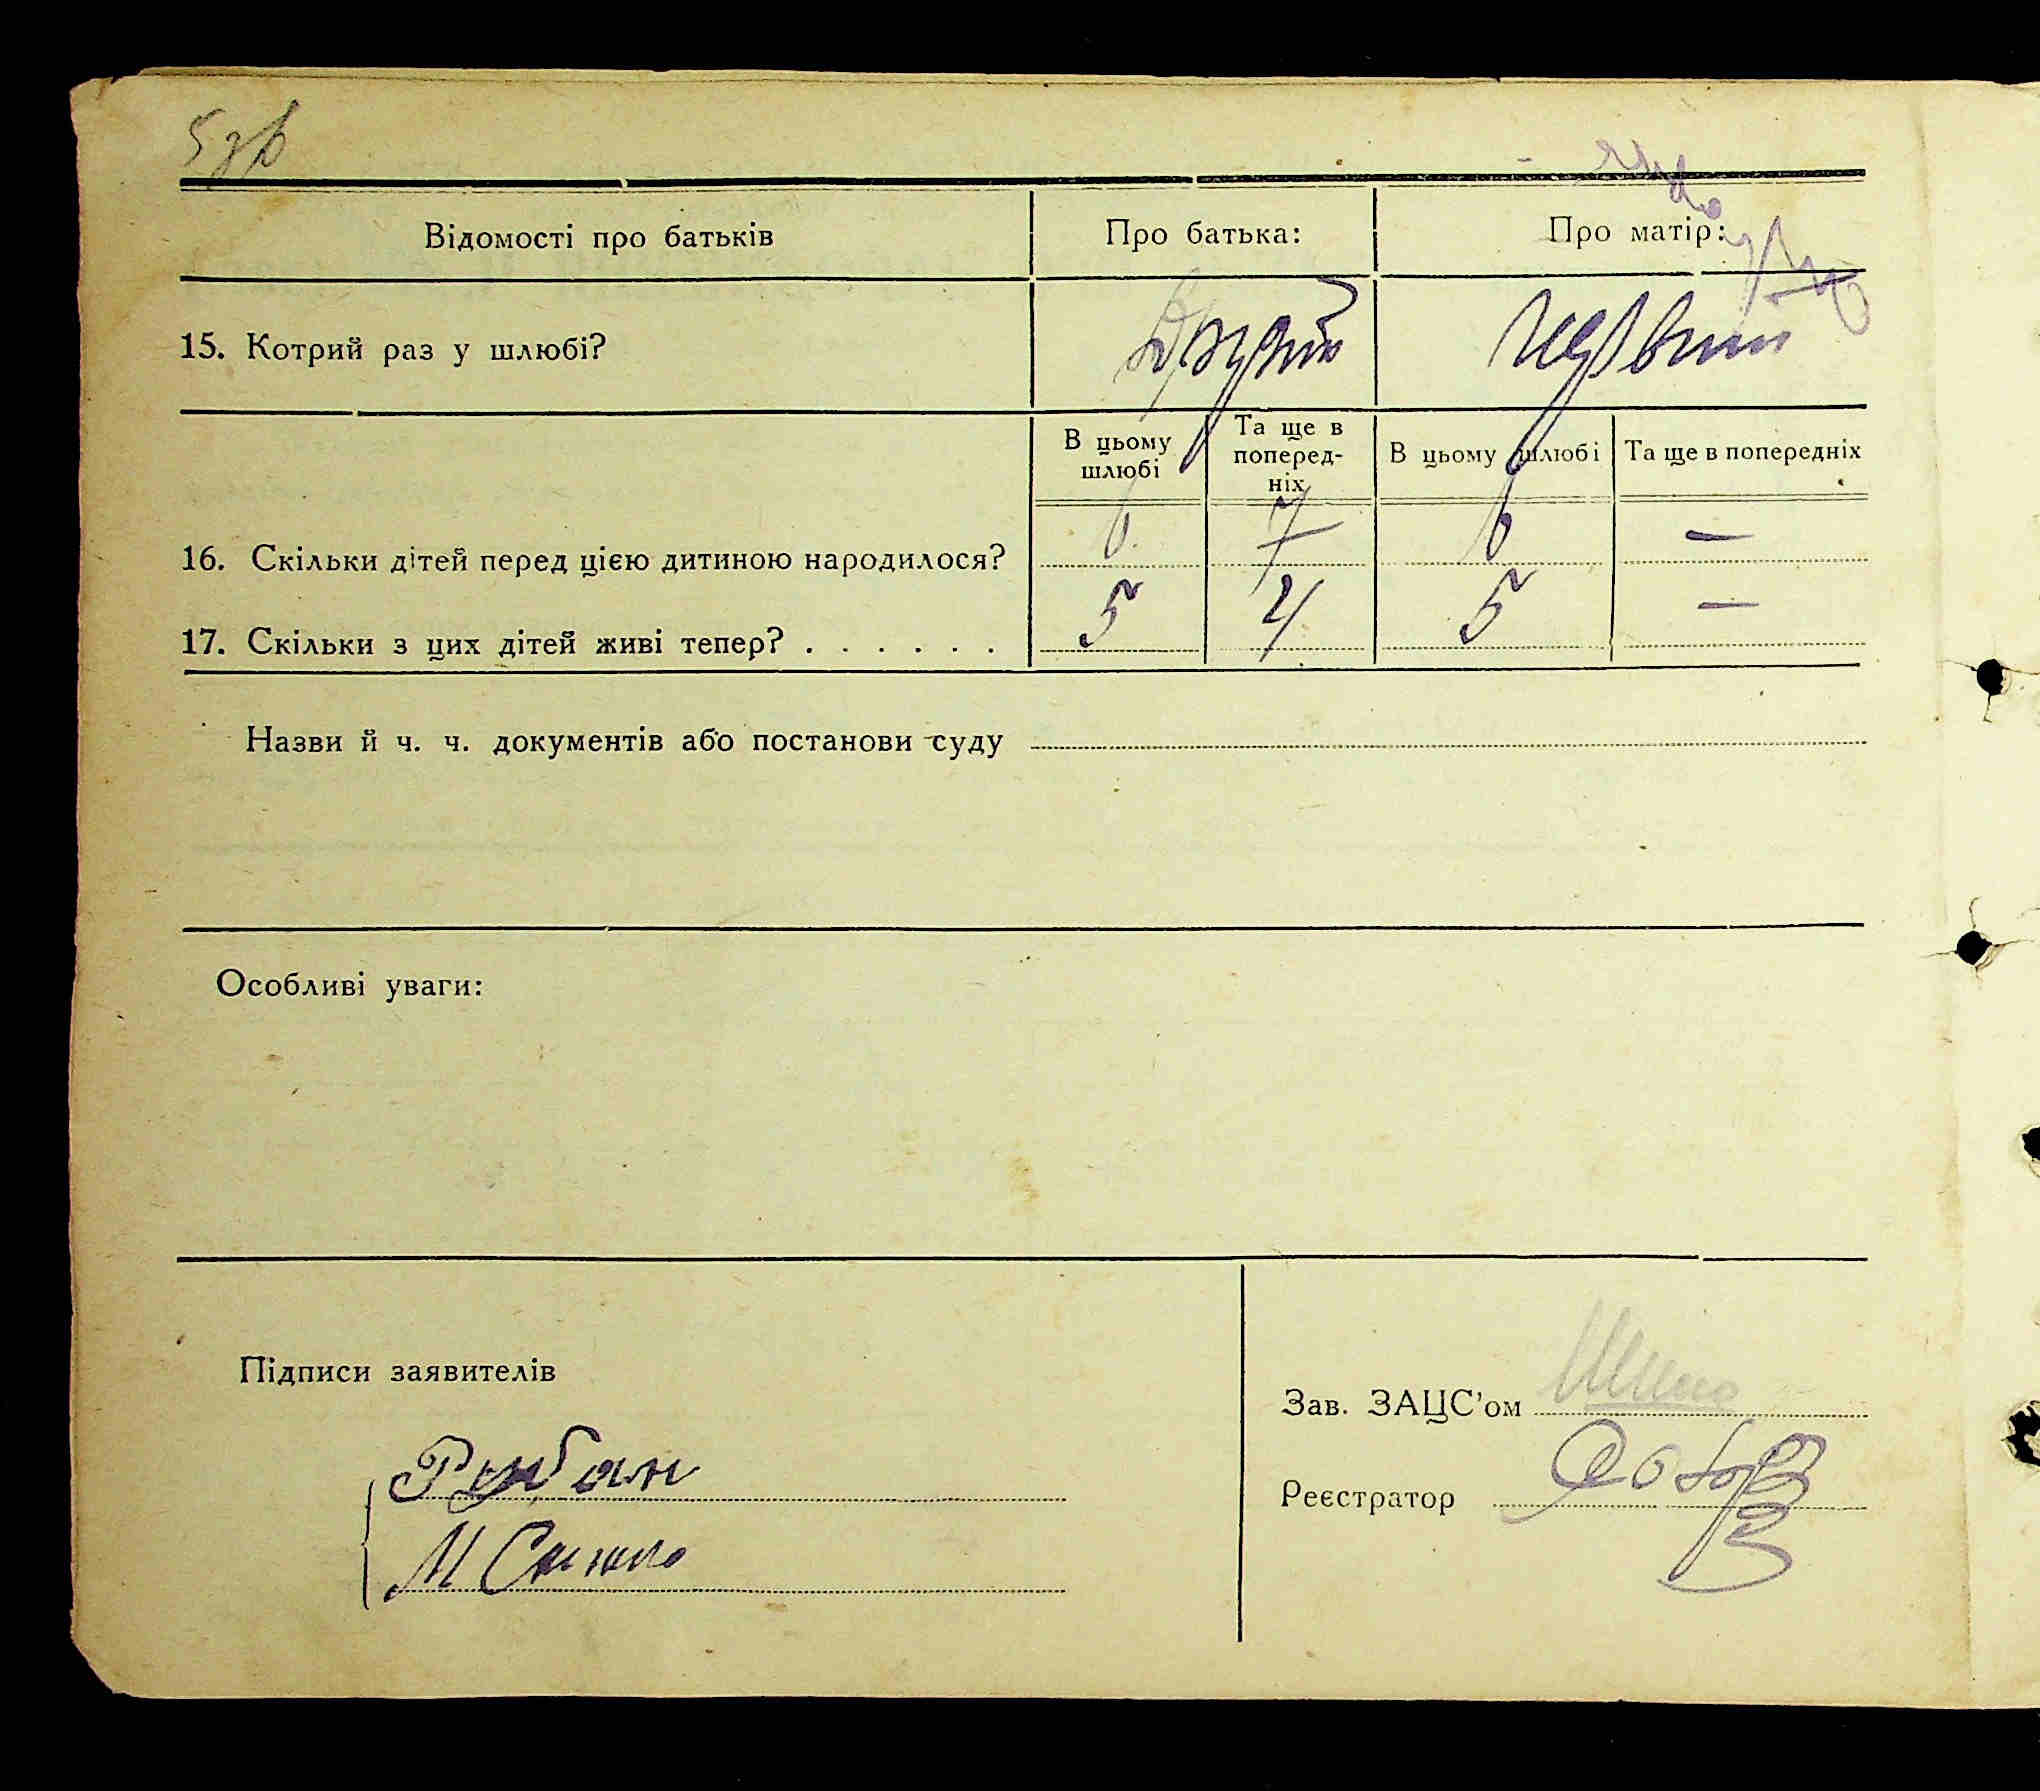 5 зв
Відомості про батьків
Про батька:
Про матір:
15. Котрий раз у шлюбі?
Другий
первий
В цьому шлюбі
Та ще в поперед-
ніх
В цьому шлюбі
Та ще в попередніх
16. Скільки дітей перед цією дитиною народилося?
6 7 6 —
17. Скільки з цих дітей живі тепер? . . . . . .
5 4 5 —
Назви й ч. ч. документів або постанови суду
Особливі уваги:
Підписи заявителів
Рибан
М
Зав. ЗАЦС'ом
Реєстратор